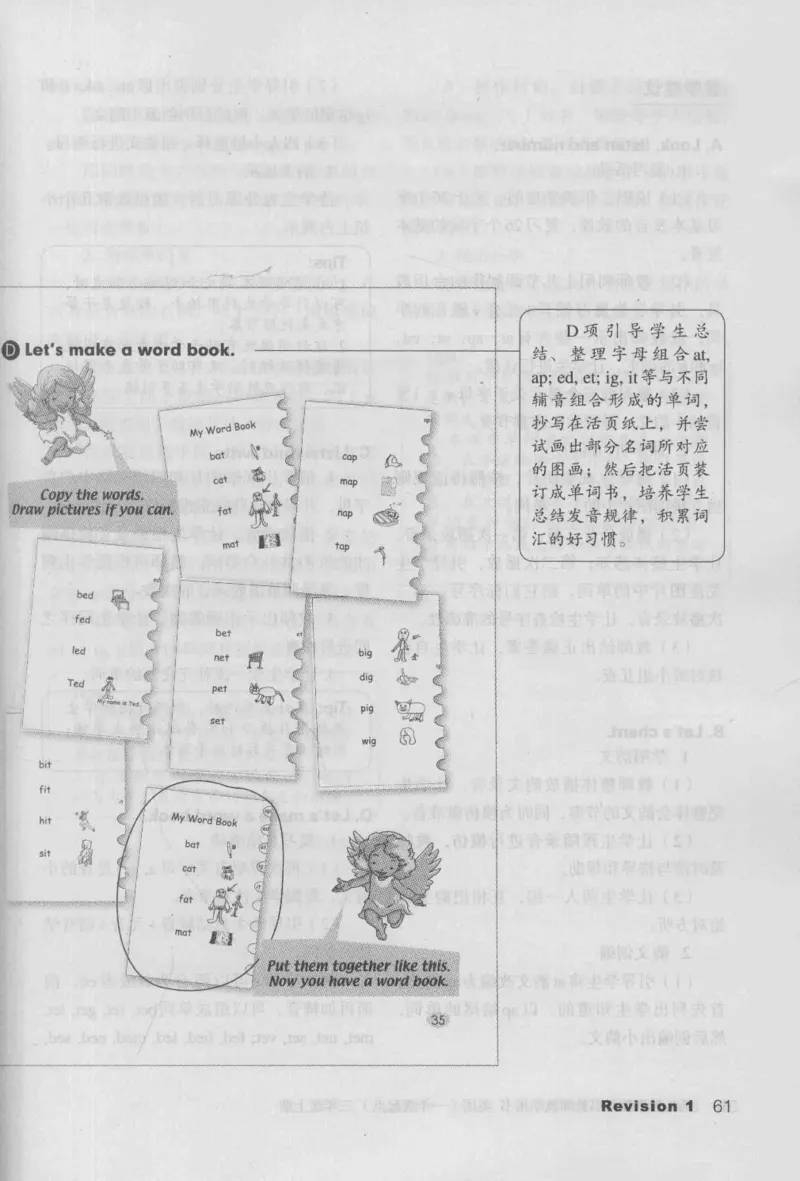 D Let's make a word book.
D项引导学生总
结、整理字母组合at,
ap; ed, et; ig, it等与不同
辅音组合形成的单词,
抄写在活页纸上,并尝
试画出部分名词所对应
的图画;然后把活页装
订成单词书,培养学生
总结发音规律,积累词
汇的好习惯。
Copy the words.
Draw pictures if you can.
My Word Book
bat
cat
fat
mat
cap
map
nap
tap
bed
fed
led
Ted
My name is Ted.
bet
net
pet
set
big
dig
pig
wig
bit
fit
hit
sit
My Word Book
bat
cat
fat
mat
Put them together like this.
Now you have a word book.
35
Revision 1 61